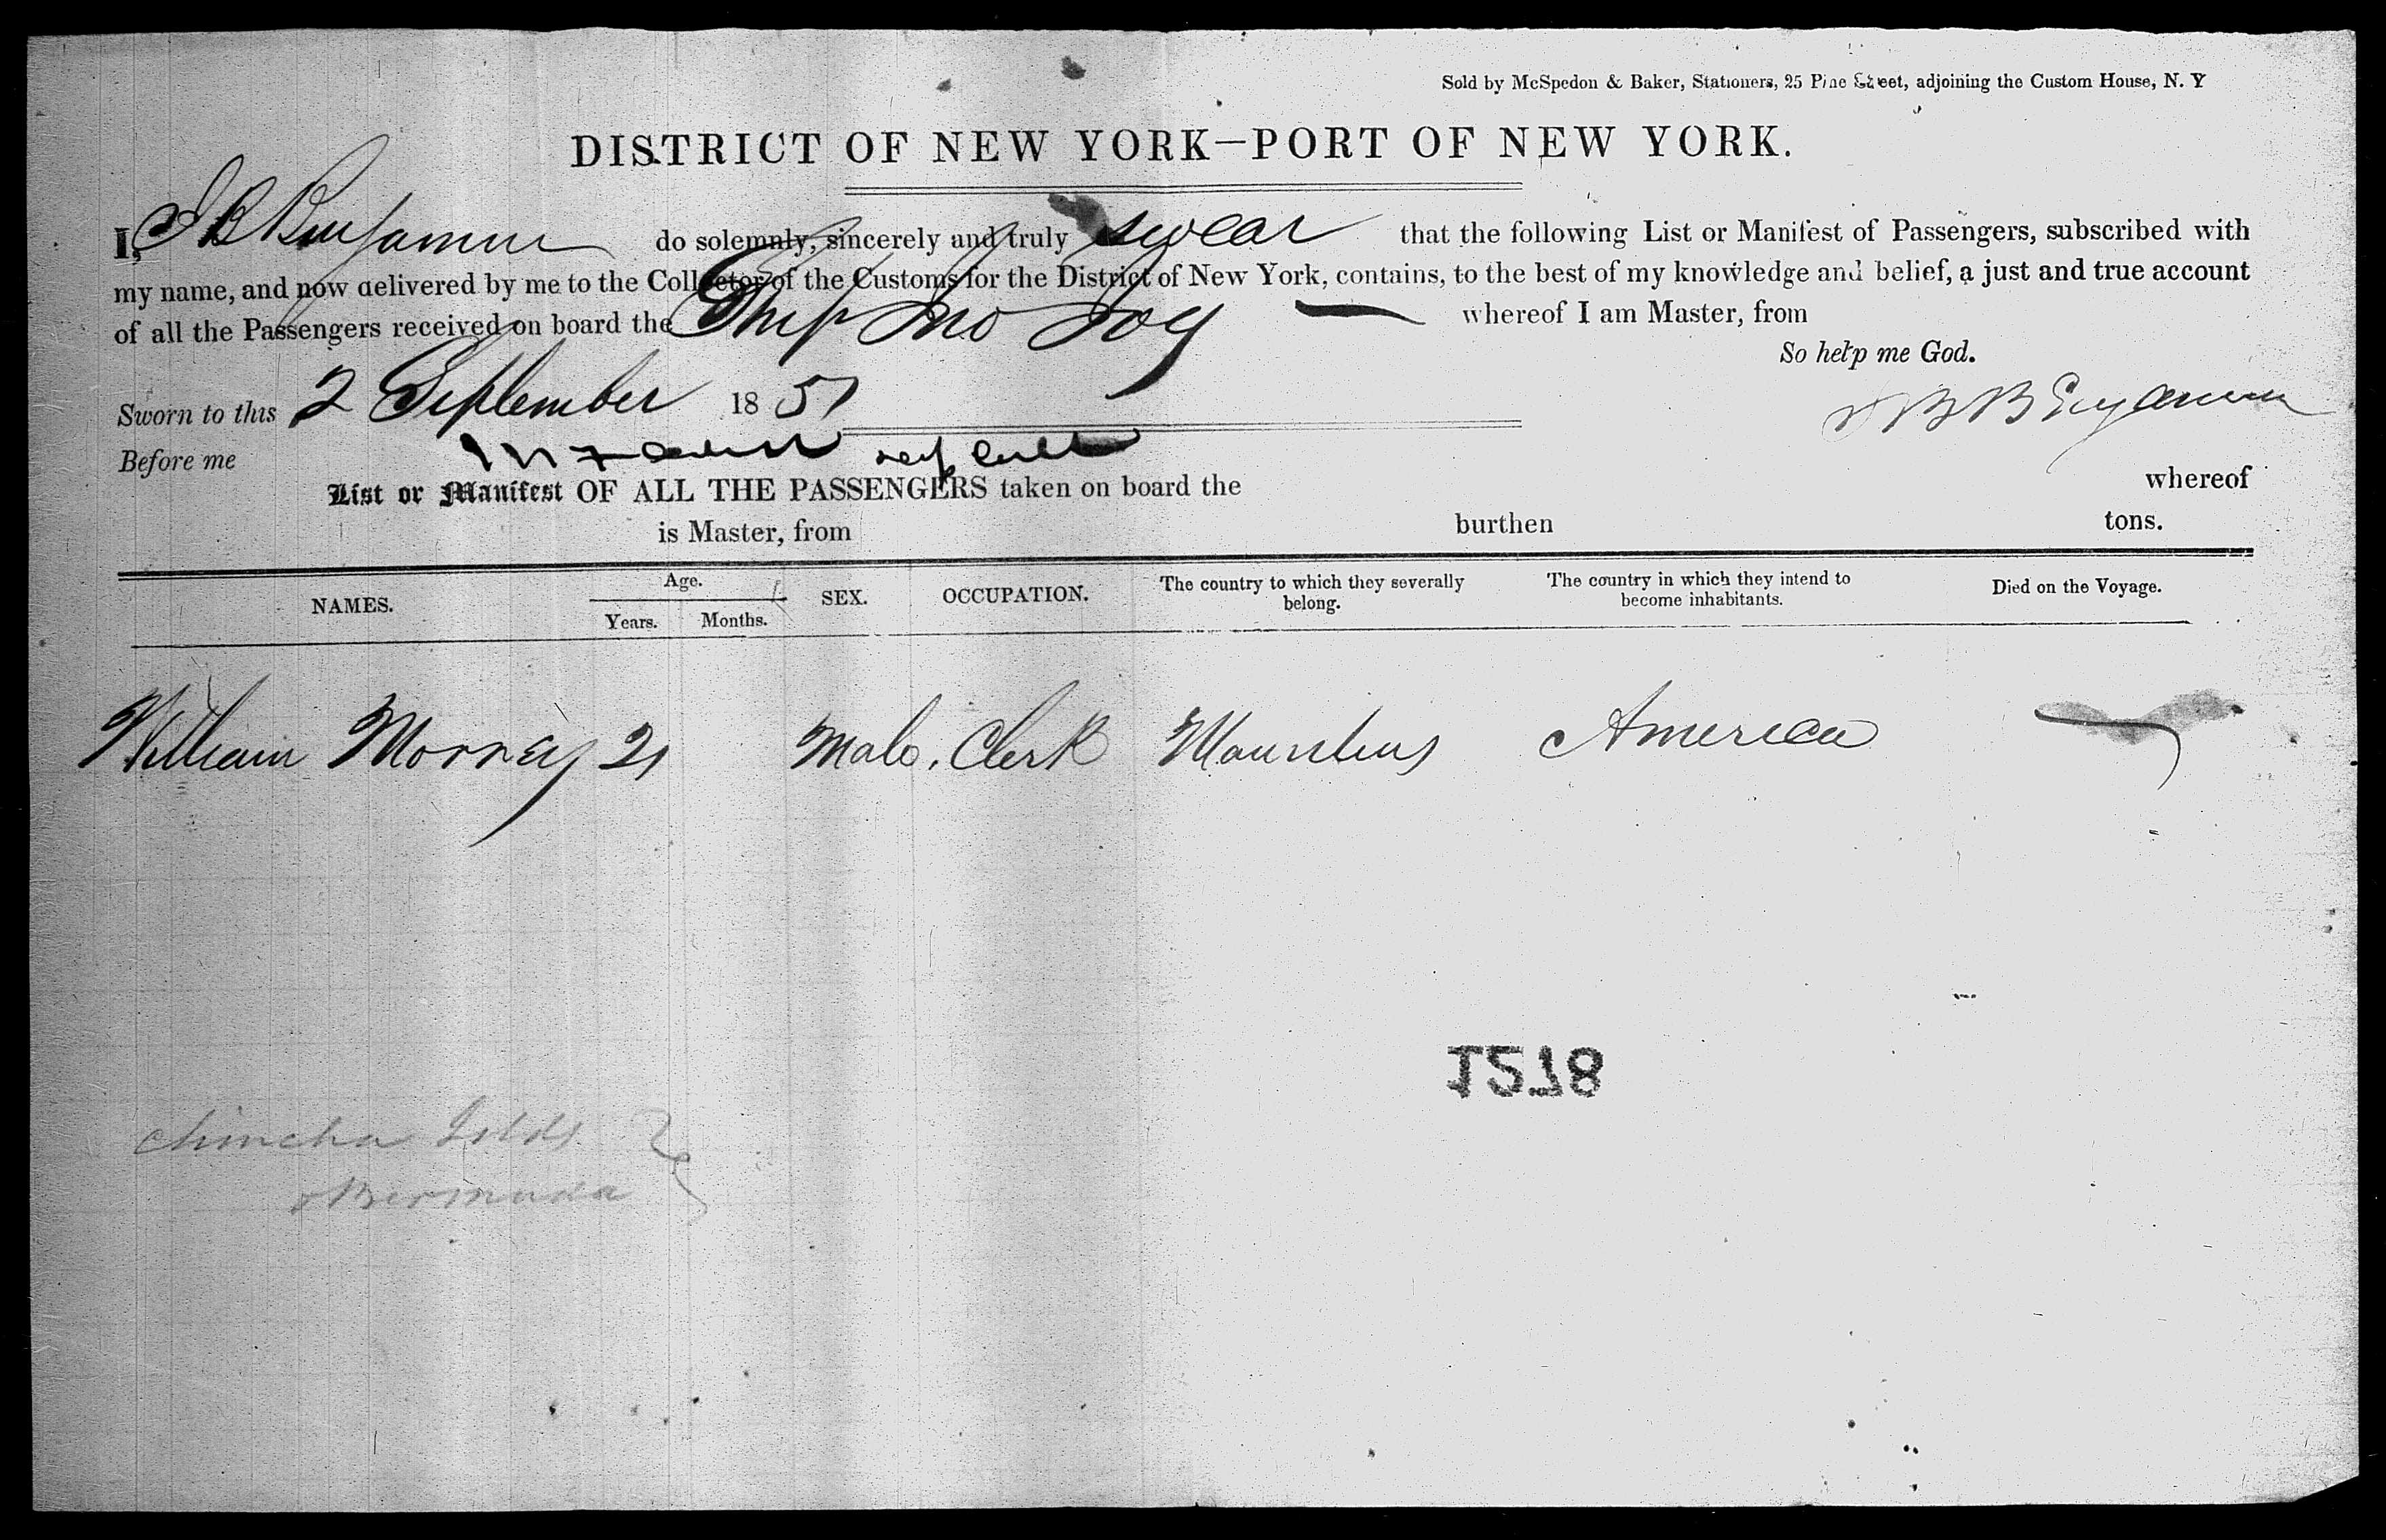 Sold by McSpedon & Baker, Stationers, 25 Pine Street, adjoining the Custom House, N. Y
DISTRICT OF NEW YORK—PORT OF NEW YORK.
I, J B Benjamin do solemnly, sincerely and truly swear that the following List or Manifest of Passengers, subscribed with
my name, and now delivered by me to the Collector of the Customs for the District of New York, contains, to the best of my knowledge and belief, a just and true account
of all the Passengers received on board the Ship Jno Jay whereof I am Master, from
So help me God.
Sworn to this 2 September 1851
J B Benjamin
Before me
List or Manifest OF ALL THE PASSENGERS taken on board the whereof
is Master, from burthen tons.
NAMES. Age. Years. Months. SEX. OCCUPATION. The country to which they severally belong. The country in which they intend to become inhabitants. Died on the Voyage.
William Morrey 21 Male. Clerk Mauritius America
1518
Chincha Islds
Bermuda